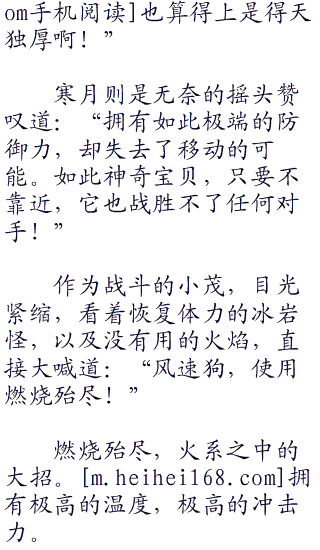 om手机阅读]也算得上是得天
独厚啊！”
寒月则是无奈的摇头赞
叹道：“拥有如此极端的防
御力，却失去了移动的可
能。如此神奇宝贝，只要不
靠近，它也战胜不了任何对
手！”
作为战斗的小茂，目光
紧缩，看着恢复体力的冰岩
怪，以及没有用的火焰，直
接大喊道：“风速狗，使用
燃烧殆尽！”
燃烧殆尽，火系之中的
大招。[m.heihei168.com]拥
有极高的温度，极高的冲击
力。